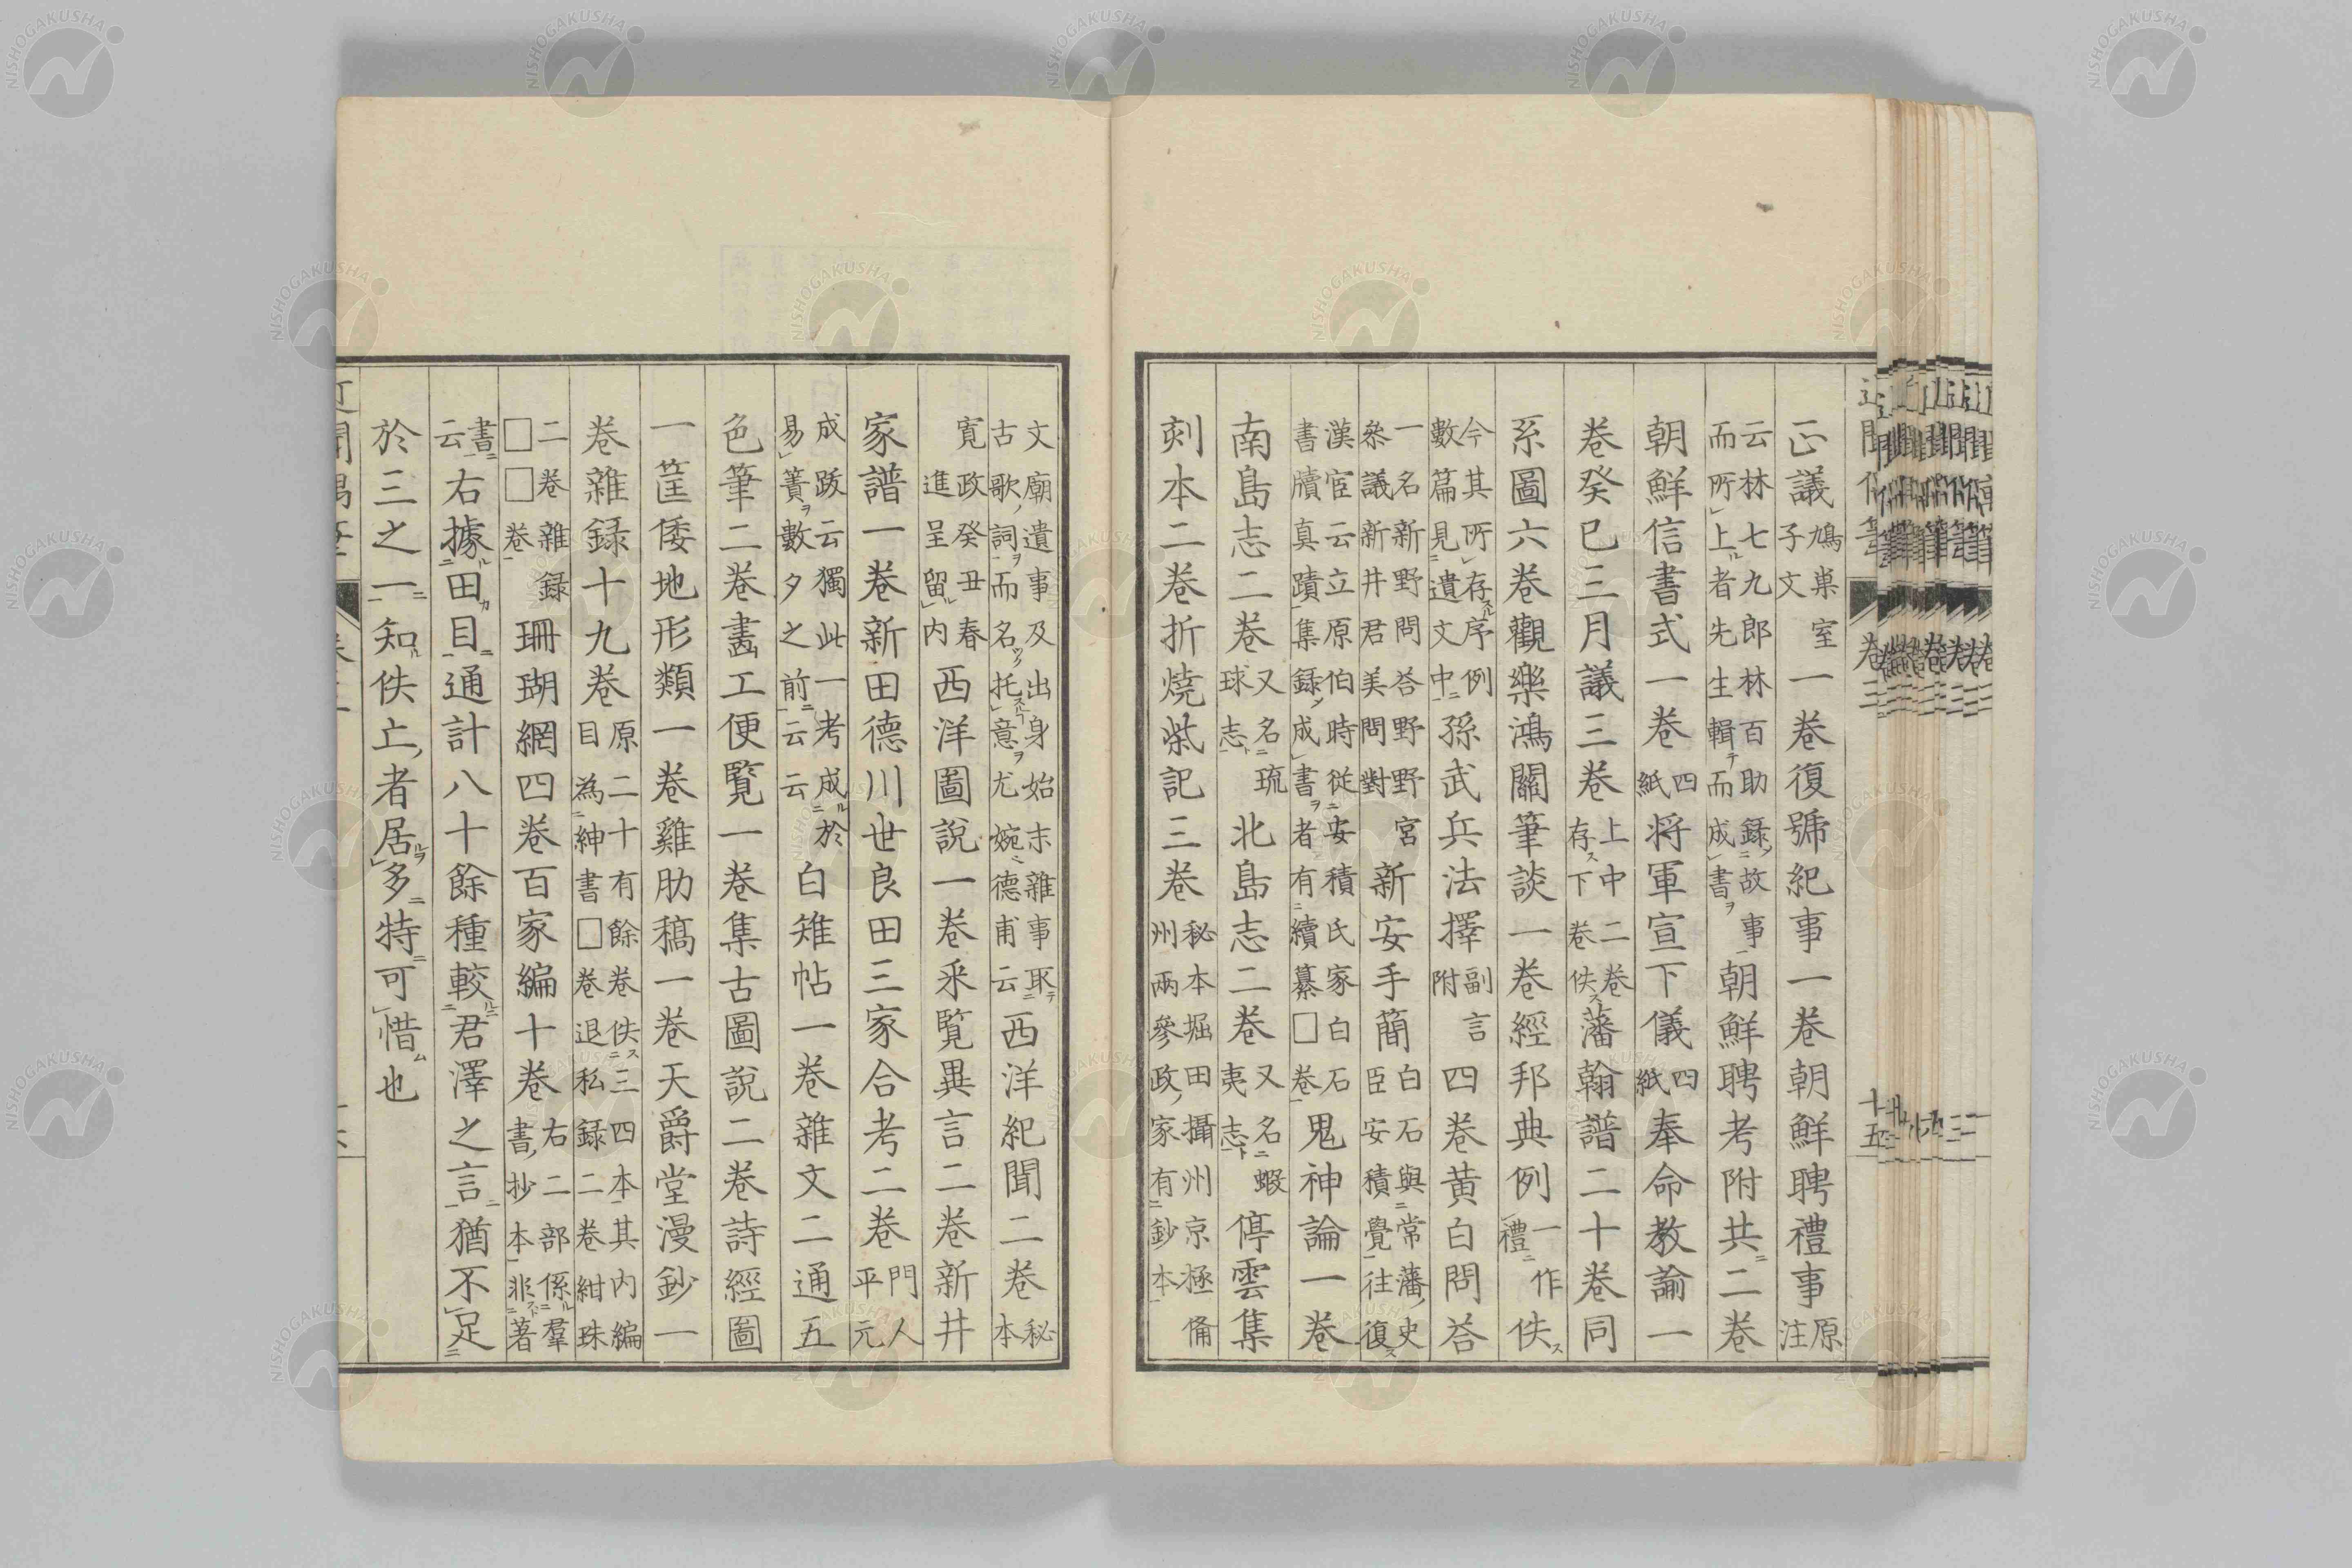 正議鳩巢室子文一卷復號紀事一卷朝鮮聘禮事原注
云林七九郎林百助録故事而所上者先生輯而成書朝鮮聘考附共二卷
朝鮮信書式一卷四紙将軍宣下儀四紙奉命教諭一
卷癸巳三月議三卷上中二卷存下卷佚藩翰譜二十卷同
系圖六卷觀樂鴻臚筆談一卷經邦典例一作禮佚
今其所存序例數篇見遺文中孫武兵法擇副言附四卷黃白問答
一名新野問答野野宮參議新井君美問對新安手簡白石與常藩史臣安積覺往復
漢宦云立原伯時從安積氏家白石書牘真蹟集録成書者有續纂□卷鬼神論一卷
南島志二卷又名琉球志北島志二卷又名蝦夷志停雲集
刻本二卷折燒柴記三卷秘本堀田攝州京極備州兩參政家有鈔本
文廟遺事及出身始末雜事取古歌詞而名托意尤婉德甫云西洋紀聞二卷秘本
寛政癸丑春進呈留内西洋圖說一卷采覽異言二卷新井
家譜一卷新田德川世良田三家合考二卷門人平元
成跋云獨此一考成於易簀數夕之前云云白雉帖一卷雜文二通五
色筆二卷畵工便覽一卷集古圖說二卷詩經圖
一筐倭地形類一卷雞肋稿一卷天爵堂漫鈔一
卷雜録十九卷原二十有餘卷佚三四本其内編目為紳書□卷退私録二卷紺珠
二卷雜録□□卷珊瑚網四卷百家編十卷右二部係羣書抄本非著
書云右據田目通計八十餘種較君澤之言猶不足
於三之一知佚亡者居多特可惜也
NISHOGAKUSHA